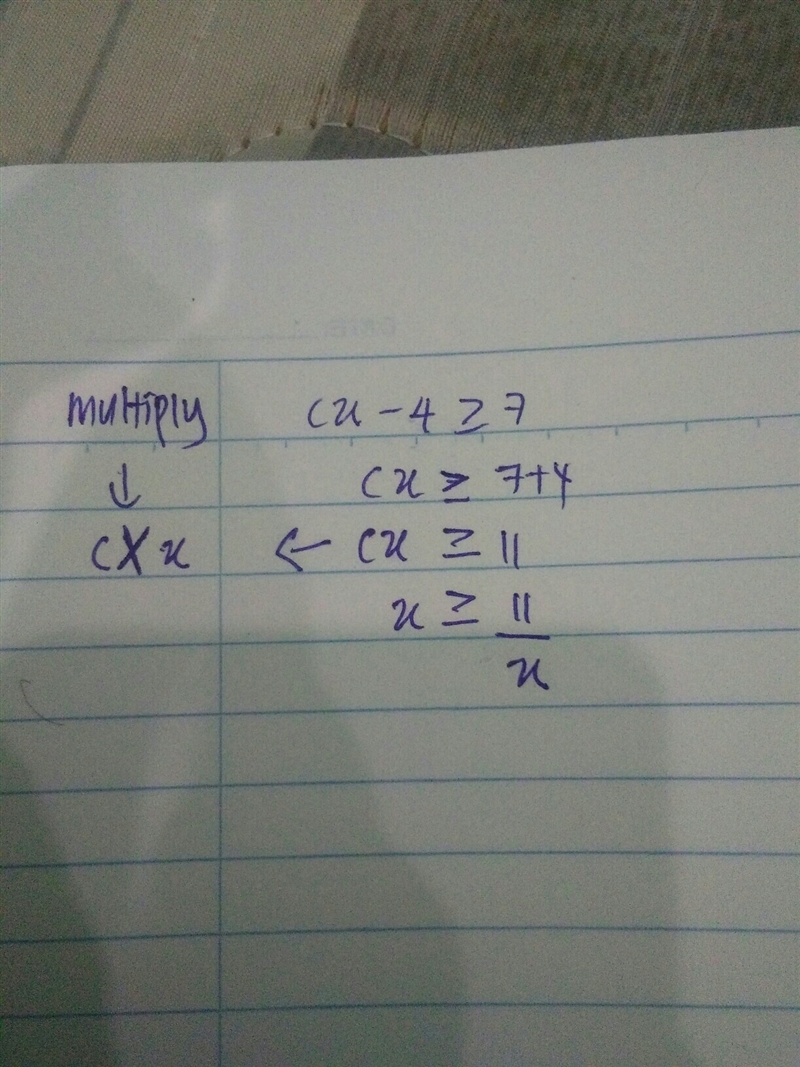 multiply cx - 4 ≥ 7
↓ cx ≥ 7+4
c×x ← cx ≥ 11
x ≥ 11
x